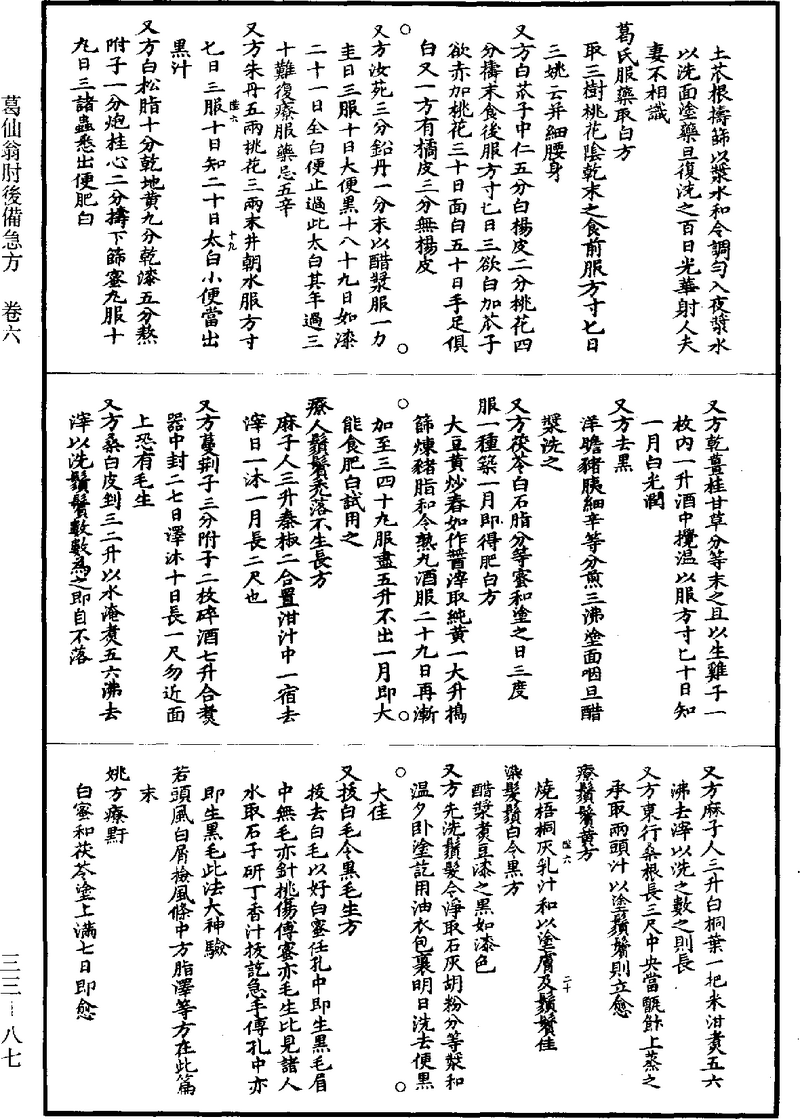 葛仙翁肘後備急方　卷六
土苽根擣篩以漿水和令調勻入夜漿水
以洗面塗藥旦復洗之百日光華射人夫
妻不相識
葛氏服藥取白方
取三樹桃花陰乾末之食前服方寸匕日
三姚云并細腰身
又方白苽子中仁五分白楊皮二分桃花四
分擣末食後服方寸匕日三欲白加苽子
欲赤加桃花三十日面白五十日手足俱
白又一方有橘皮三分無楊皮
又方汝菀三分鉛丹一分末以醋漿服一刀
圭日三服十日大便黑十八十九日如漆
二十一日全白便止過此太白其年過三
十難復療服藥忌五辛
又方朱丹五兩桃花三兩末井朝水服方寸
十九
匕日三服十日知二十日太白小便當出
黑汁
又方白松脂十分乾地黄九分乾漆五分熬
附子一分炮桂心二分擣下篩蜜丸服十
丸日三諸蟲悉出便肥白
又方乾薑桂甘草分等末之且以生雞子一
枚内一升酒中攪温以服方寸匕十日知
一月白光潤
又方去黑
洋膽豬胰細辛等分煎三沸塗面咽旦醋
漿洗之
又方茯苓白石脂分等蜜和塗之日三度
服一種藥一月即得肥白方
大豆黄炒舂如作醬滓取純黄一大升搗
篩煉豬脂和令熟丸酒服二十九日再漸
加至三四十九服盡五升不出一月即大
能食肥白試用之
療人鬚鬢禿落不生長方
麻子人三升秦椒二合置泔汁中一宿去
滓日一沐一月長二尺也
又方蔓荆子三分附子二枚碎酒七升合煑
器中封二七日澤沐十日長一尺勿近面
上恐有毛生
又方桑白皮剉三二升以水淹煑五六沸去
滓以洗鬚鬢數數爲之即自不落
又方麻子人三升白桐葉一把米泔煑五六
沸去滓以洗之數之則長
又方東行桑根長三尺中央當甑飰上蒸之
承取兩頭汁以塗鬚鬢則立愈
療鬚鬢黄方
二十
燒梧桐灰乳汁和以塗膚及鬚鬢佳
染髪鬚白令黑方
醋漿煑豆漆之黑如漆色
又方先洗鬚髪令淨取石灰胡粉分等漿和
温夕卧塗訖用油衣包裹明日洗去便黑
大佳
又拔白毛令黑毛生方
拔去白毛以好白蜜任孔中即生黑毛眉
中無毛亦針挑傷傅蜜亦毛生比見諸人
水取石子研丁香汁拔訖急手傅孔中亦
即生黑毛此法大神驗
若頭風白屑檢風條中方脂澤等方在此篇
末
姚方療䵟
白蜜和茯苓塗上滿七日即愈
三三—八七